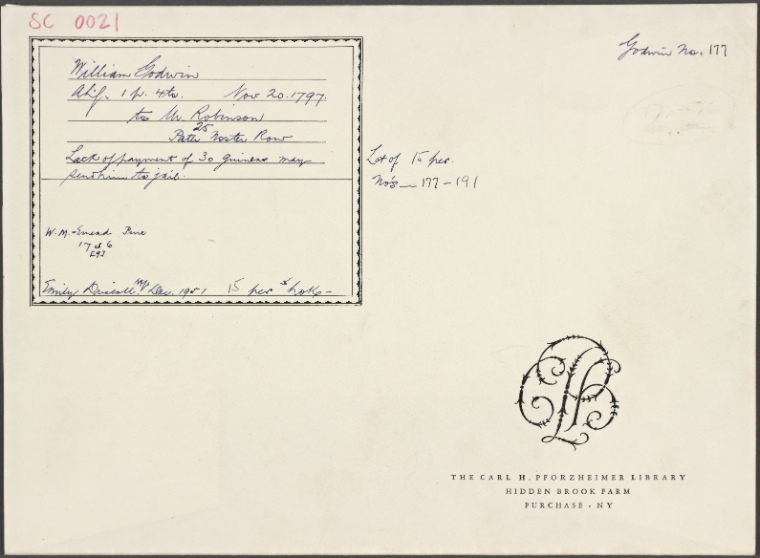 SC 0021
Godwin No. 177
William Godwin
1 p. 4to. Nov 20. 1797.
to Mr. Robinson
25
Pater Noster Row
Lack of payment of 30 guineas may
send him to jail.
Lot of 15 pcs.
No's — 177 - 191
W.M.
17 6
Emily Driscoll Dec. 1951 15 pcs
THE CARL H. PFORZHEIMER LIBRARY
HIDDEN BROOK FARM
PURCHASE · NY